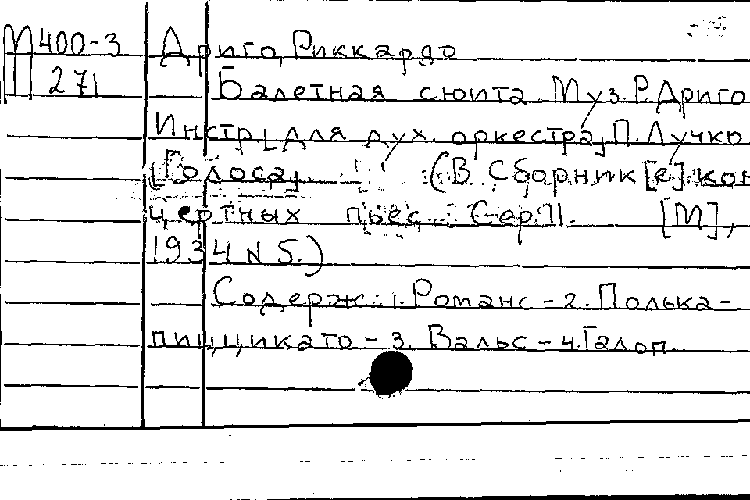 М400-3 Дриго, Риккардо
271 Балетная сюита. Муз. Р. Дриго
Инстр[.] для дух. оркестра, П. Лучко
[Голоса] (В Сборник[е] кон
цертных пьес. Сер. II. [М],
1934 N 5.)
Содерж.: 1. Романс - 2. Полька-
пиццикато - 3. Вальс - 4. Галоп.